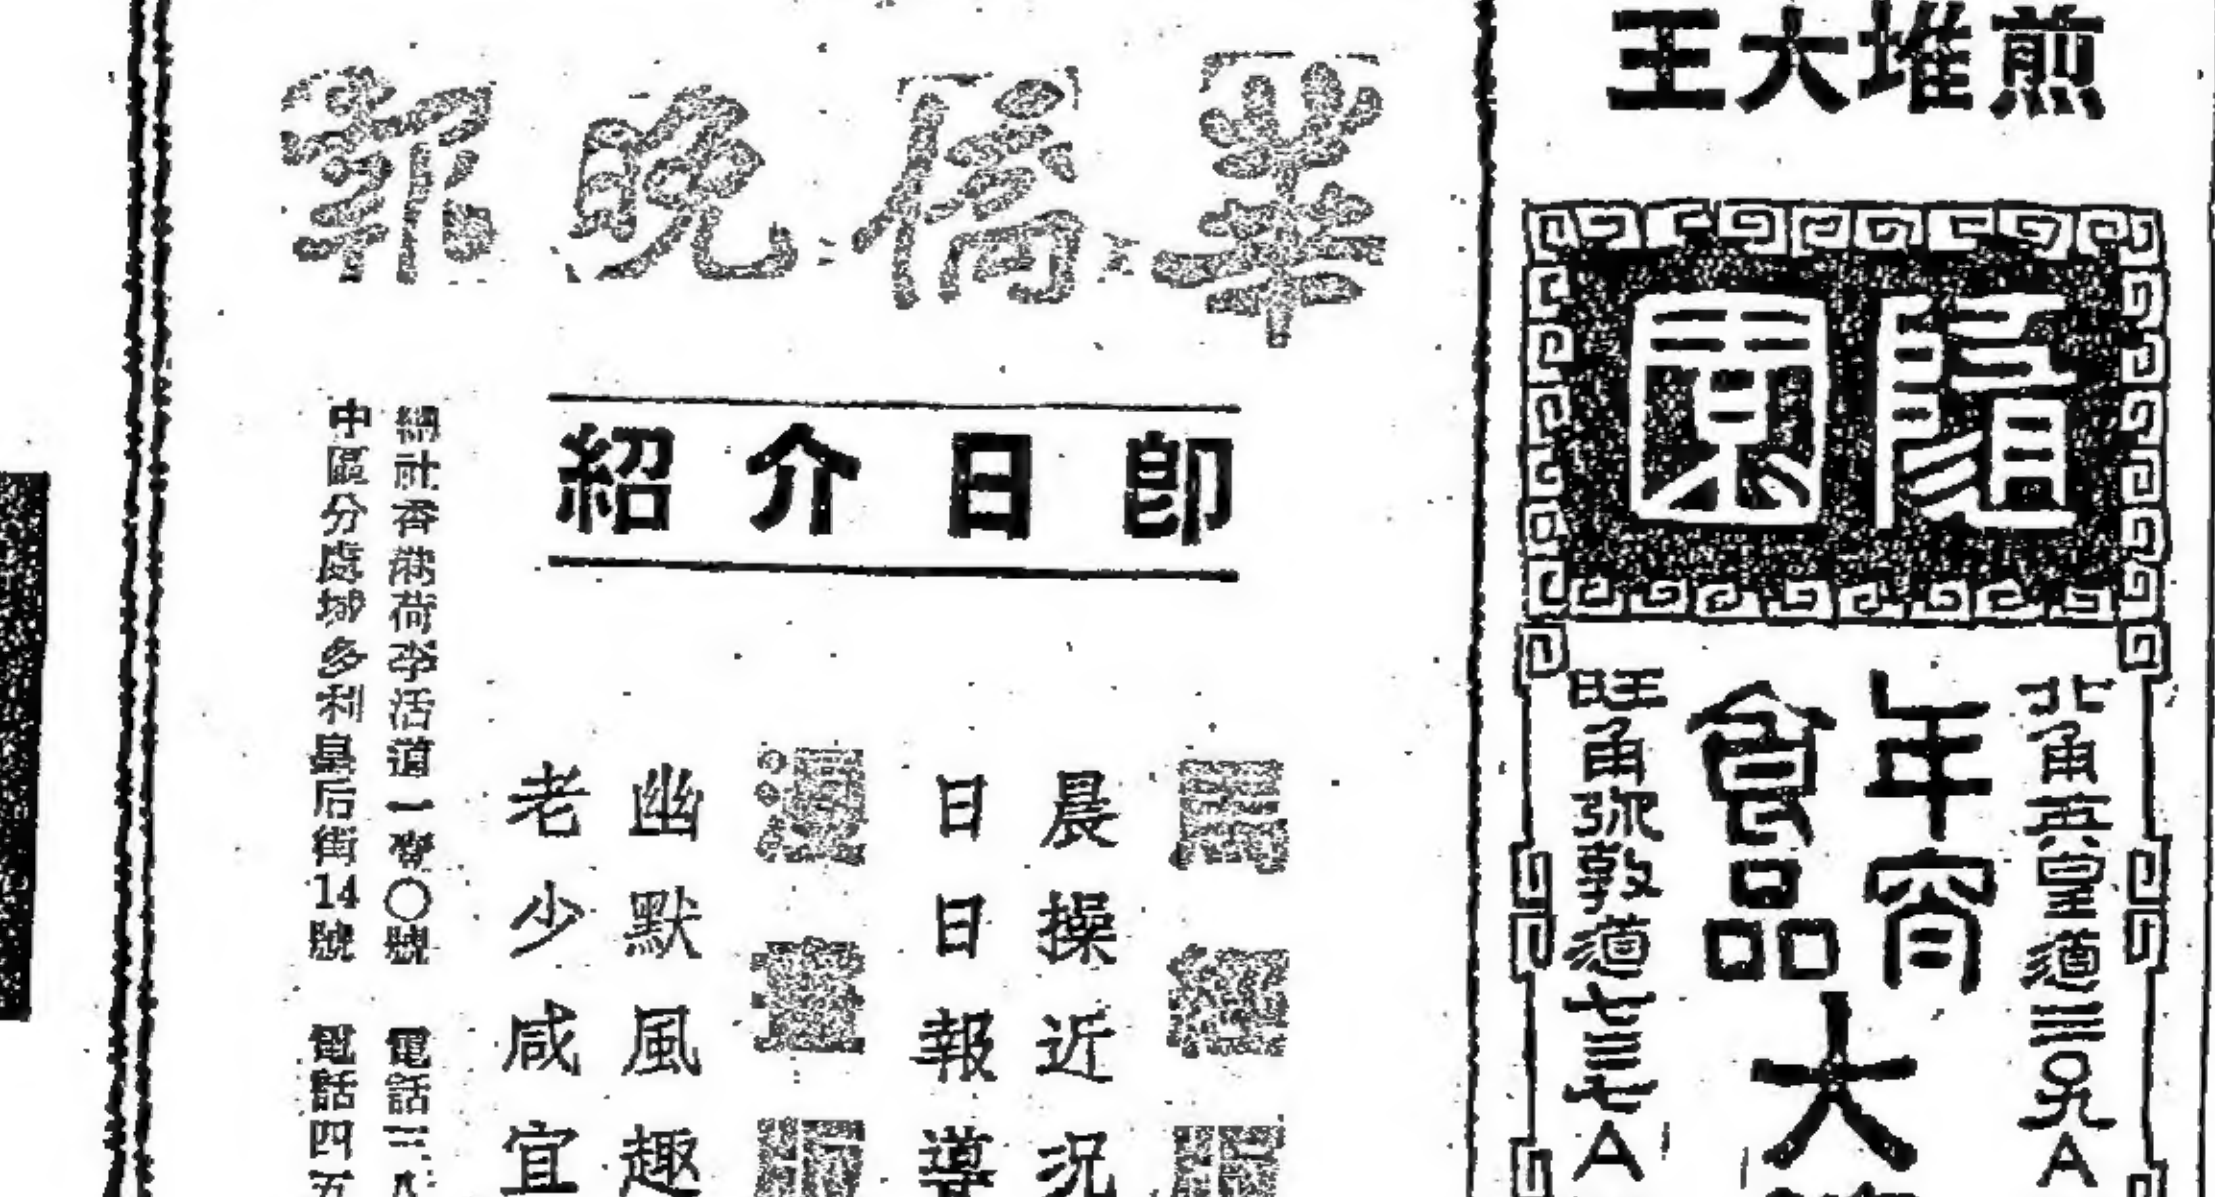 煎堆大王
隨園
北角英皇道三三〇九A
年宵
食品
大
旺角弥敦道七三七A
華僑晚報
即日介紹
馬經版
晨操近況
日日報導
漫畫版
幽默風趣
老少咸宜
社香港荷李活道一零〇號 電話三八
中區分處域多利皇后街14號 電話四五